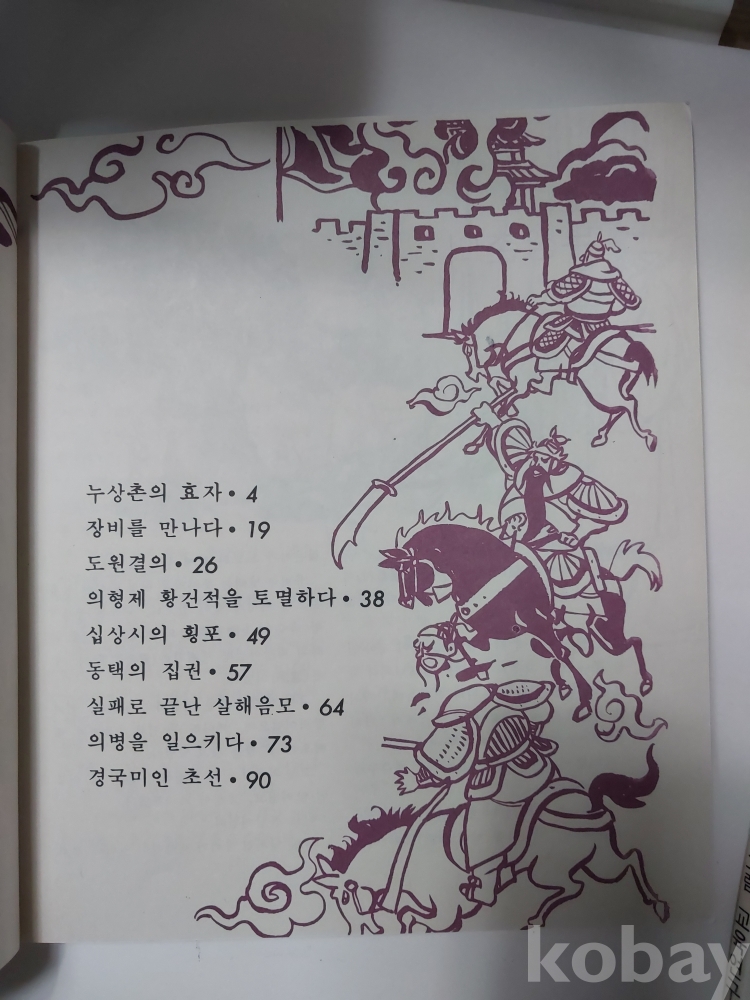 누상촌의 효자 • 4
장비를 만나다 • 19
도원결의 • 26
의형제 황건적을 토멸하다 • 38
십상시의 횡포 • 49
동택의 집권 • 57
실패로 끝난 살해음모 • 64
의병을 일으키다 • 73
경국미인 초선 • 90
kobay